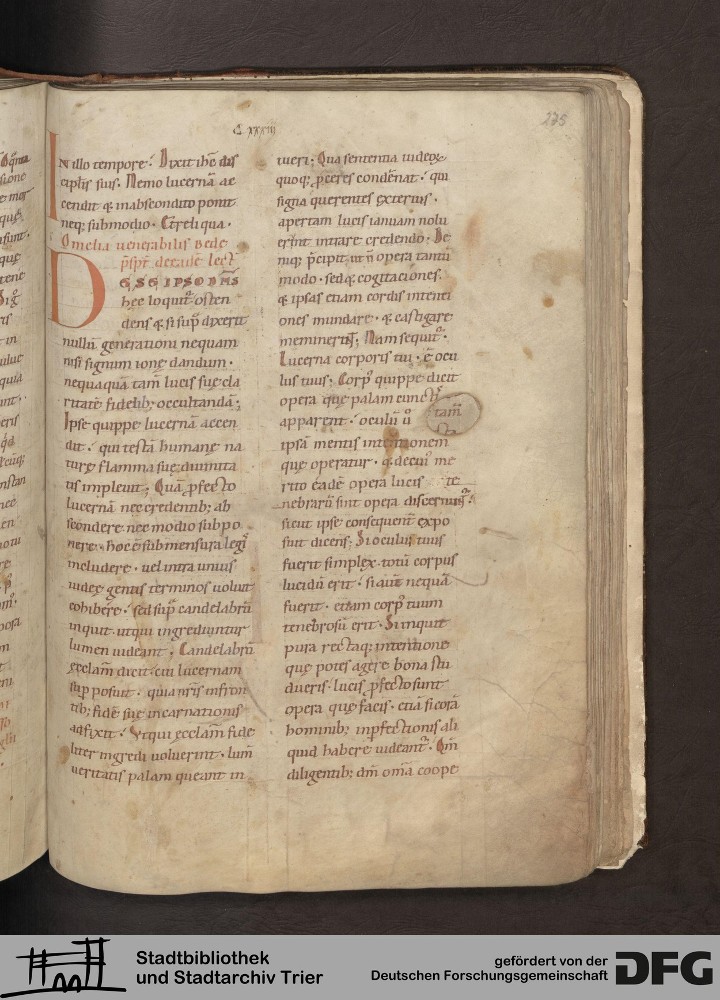 C xxxiii
275
In illo tempore. Dixit ihc̄ dis
cipl̄is suis. Nemo lucernā ac
cendit & in abscondito ponit
neq; sub modio. Et reliqua.
Omelia uenerabilis bede
p̄sp̄r̄i de eadē lect̄
DE SE IPSO DN̄S
hęc loquit̄ osten
dens & si sup̄ dixerit
nullū generationi nequam
nisi signum ionę dandum.
nequaquā tam̄ lucis suę cla
ritatē fidelib; occultandā;
Ipse quippe lucernā accen
dit. qui testā humanę na
turę flamma suę diuinita
tis impleuit; Quā p̄fecto
lucernā nec credentib; ab
scondere nec modio subpo
nere. hoc ē sub mensura legis
includere. uel intra unius
iudeę gentis terminos uoluit
cohibere. sed sup̄ candelabrū
inquit ut qui ingrediuntur
lumen uideant; Candelabrū
ęcclam dicit. cui lucernam
sup posuit. quia nr̄is in fron
tib; fidē suę incarnationis
adfixit. Ut qui ecclam fide
liter ingredi uoluerint. lum̄
ueritatis palam queant in
tueri; Qua sententia iudeos
quoq; p̄ceres condēnat. qui
signa querentes exterius.
apertam lucis ianuam nolu
erint intrare credendo. De
niq; p̄cipit ut n̄ opera tantū
modo. sed & cogitationes.
& ipsas etiam cordis intenti
ones mundare. & castigare
meminerit; Nam sequit̄.
Lucerna corporis tui. ē ocu
lus tuus; Corp; quippe dicit
opera quę palam cunctis
apparent. oculū ū tam̄
ipsā mentis intentionem
quę operatur. & de cui; me
rito eadē opera lucis te
nebrarū sint opera discernit̄.
sicut ipse consequent̄ expo
suit dicens; Si oculus tuus
fuerit simplex. totū corpus
lucidū erit. si aut̄ nequā
fuerit. etiam corp; tuum
tenebrosū erit. Si inquit
pura rectaq; intentione
quę potes agere bona stu
dueris. lucis p̄fecto sunt
opera quę facis. etiā si corā
hominib; inp̄fectionis ali
quid habere uideant̄. Qm̄
diligentib; dm̄ om̄a coope
Stadtbibliothek
und Stadtarchiv Trier
gefördert von der
Deutschen Forschungsgemeinschaft
DFG